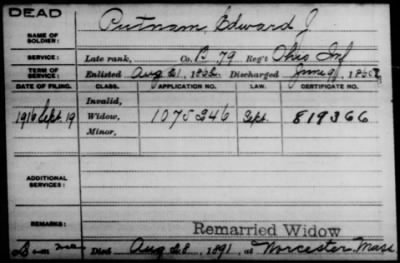 DEAD
NAME OF SOLDIER: Putnam, Edward J
SERVICE: Late rank, Co. B 79 Reg't Ohio Inf
TERM OF SERVICE: Enlisted Aug 21, 1862 Discharged June 9, 1865
DATE OF FILING. CLASS. APPLICATION NO. LAW. CERTIFICATE NO.
Invalid,
1916 Sept. 19 Widow, 1075346 Sept. 819366
Minor,
ADDITIONAL SERVICES:
REMARKS: Remarried Widow
Died Aug 28, 1891, at Worcester Mass